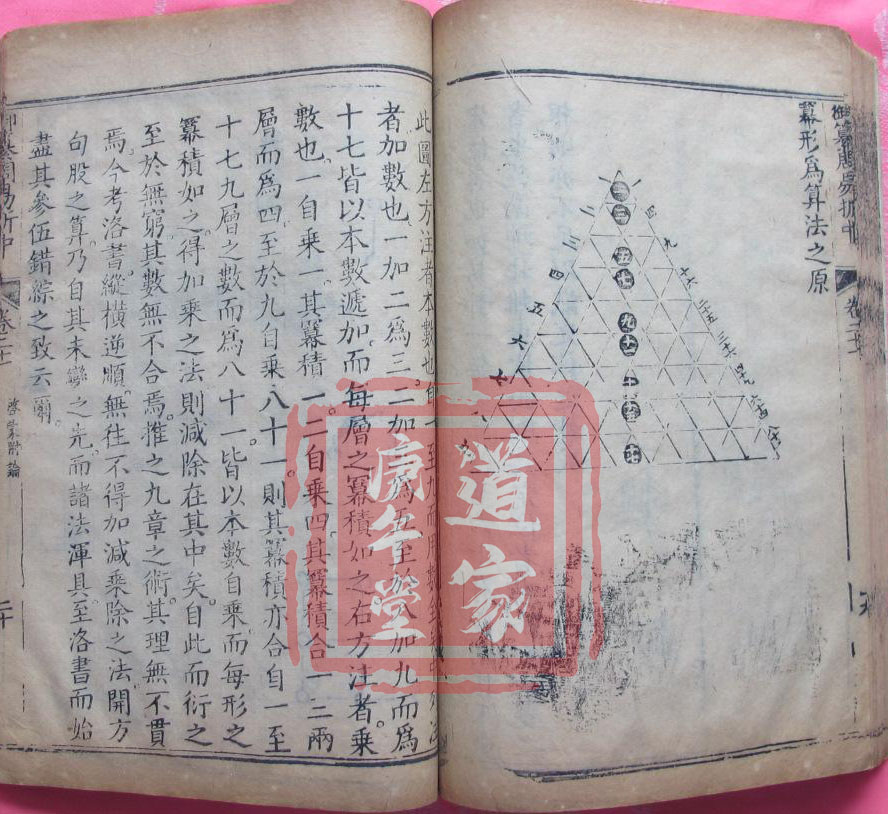 御纂周易折中
卷二十一
冪形爲算法之原
三
五
七
九
十一
十五
十七
二
三
四
五
六
七
四
九
十六
二十五
三十六
四十九
六十四
八十一
此圖左方注者本數也
者加數也一加二爲三二加爲五至於八加九而爲
十七皆以本數遞加而每層之冪積如之右方注者乘
數也一自乘一其冪積一二自乘四其冪積合一三兩
層而爲四至於九自乘八十一則其冪積亦合自一至
十七九層之數而爲八十一皆以本數自乘而每形之
冪積如之得加乘之法則減除在其中矣自此而衍之
至於無窮其數無不合焉推之九章之術其理無不貫
焉今考洛書縱橫逆順無往不得加減乘除之法開方
句股之算乃自其未變之先而諸法渾具至洛書而始
盡其參伍錯綜之致云爾
御纂周易折中
卷二十一
啓蒙附論
二十
道家
堂